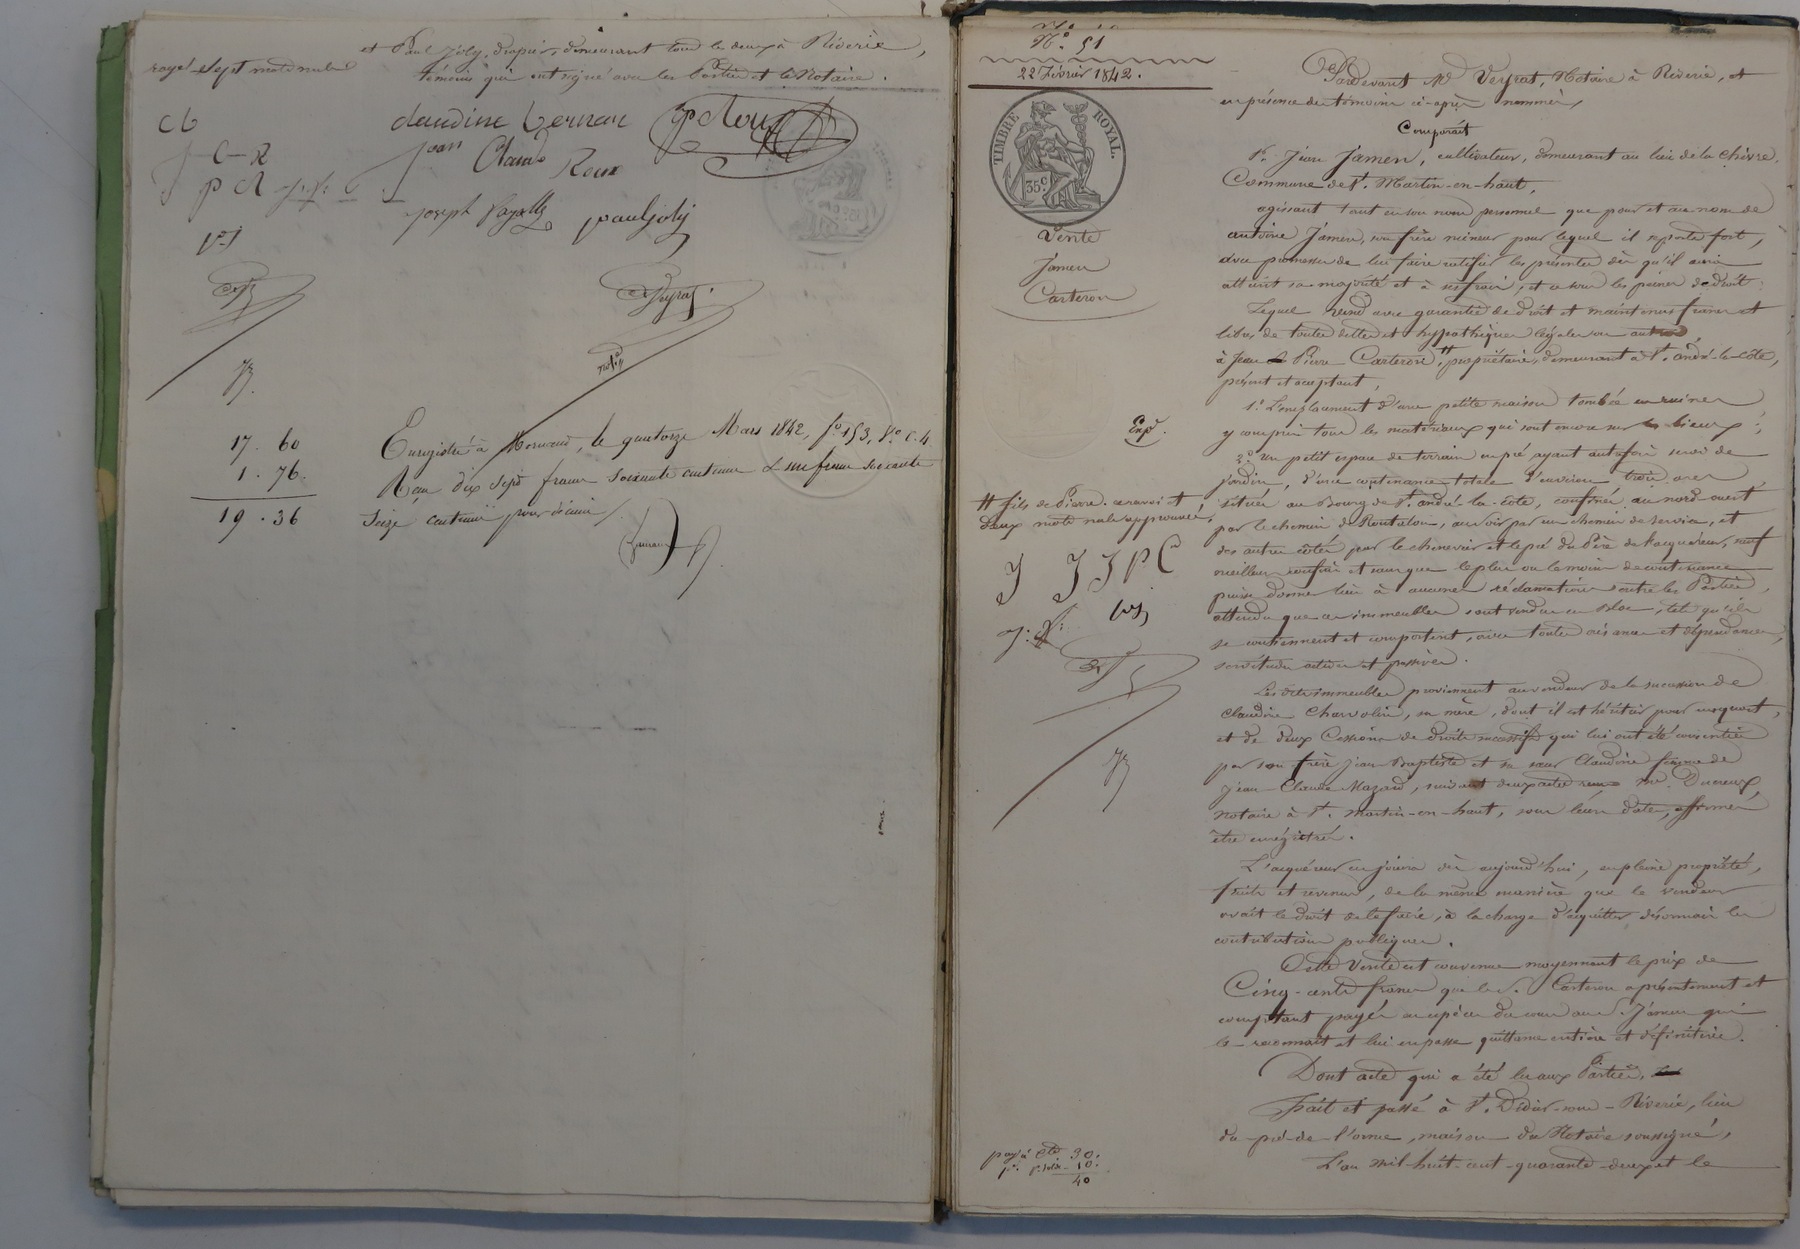 et Paul Joly, drapier, demeurant tous les deux à Riverie,
témoins qui ont signé avec les Parties et le Notaire.
rayé sept mots nuls
claudine Vernay
jean Claude Roux
joseph pauljoly
Veyrat
not.re
17. 60
1. 76.
19. 36
Enregistré à Mornant, le quatorze Mars 1842, f.o 153, v.o c. 4.
Reçu dix sept francs soixante centimes & un franc soixante
seize centimes pour décime
N.o 51
22 Février 1842.
TIMBRE ROYAL.
35c
Vente
Jamen
Carteron
Exp.
Pardevant M.e Veyrat, Notaire à Riverie, et
en présence des témoins ci-après nommés,
Comparaît
Jean Jamen, cultivateur, demeurant au lieu de la Chèvre,
Commune de St. Martin-en-haut,
agissant tant en son nom personnel que pour et au nom de
antoine Jamen, son frère mineur pour lequel il se porte fort,
avec promesse de lui faire ratifier les présentes dès qu'il aura
atteint sa majorité et à ses frais, et ce sous les peines de droit.
Lequel vend avec garantie de droit et maintenue franc et
libre de toutes dettes et hypothèques légales ou autres
à Jean Pierre Carteron, # propriétaire, demeurant à St. andré-la-côte,
présent et acceptant,
1.o L'emplacement d'une petite maison tombée en ruines
y compris tous les matériaux qui sont encore sur les lieux;
2.o Un petit espace de terrain en pré ayant autrefois servi de
jardin, d'une contenance totale d'environ trois ares,
situés au Bourg de St. andré-la-côte, confinés au nord-ouest
par le chemin de Rontalon, au soir par un chemin de service, et
des autres côtés par le chenevier et le pré du Père de l'acquéreur, sauf
meilleurs confins et sans que le plus ou le moins de contenance
puisse donner lieu à aucune réclamation entre les Parties,
attendu que ces immeubles sont vendus en Bloc, tels qu'ils
se contiennent et comportent, avec toutes aisances et dépendances,
servitudes actives et passives.
# fils de Pierre. renvoi et
deux mots nuls approuvés,
J J J P C
Les dits immeubles proviennent au vendeur de la succession de
Claudine Charvolin, sa mère, dont il est héritier pour un quart,
et de deux Cessions de droits successifs qui lui ont été consenties
par son frère Jean-Baptiste et sa sœur Claudine femme de
Jean-Claude Mazard, suivant deux actes M.e Ducreux,
notaire à St. Martin-en-haut, sous leurs dates, affirmés
être enrégistrés.
L'acquéreur en jouira dès aujourd'hui, en pleine propriété,
fruits et revenus, de la même manière que le vendeur
avait le droit de le faire, à la charge d'acquitter désormais les
contributions publiques.
Cette Vente est convenue moyennant le prix de
Cinq-cents francs que le S. Carteron a présentement et
comptant payés en espèces du cours au S. Jamen qui
le reconnaît et lui en passe quittance entière et définitive.
Dont acte qui a été lu aux Parties.
Fait et passé à St. Didier-sous-Riverie, lieu
du pié-de-l'orme, maison du Notaire soussigné,
L'an mil-huit-cent-quarante-deux et le
30.
10.
40